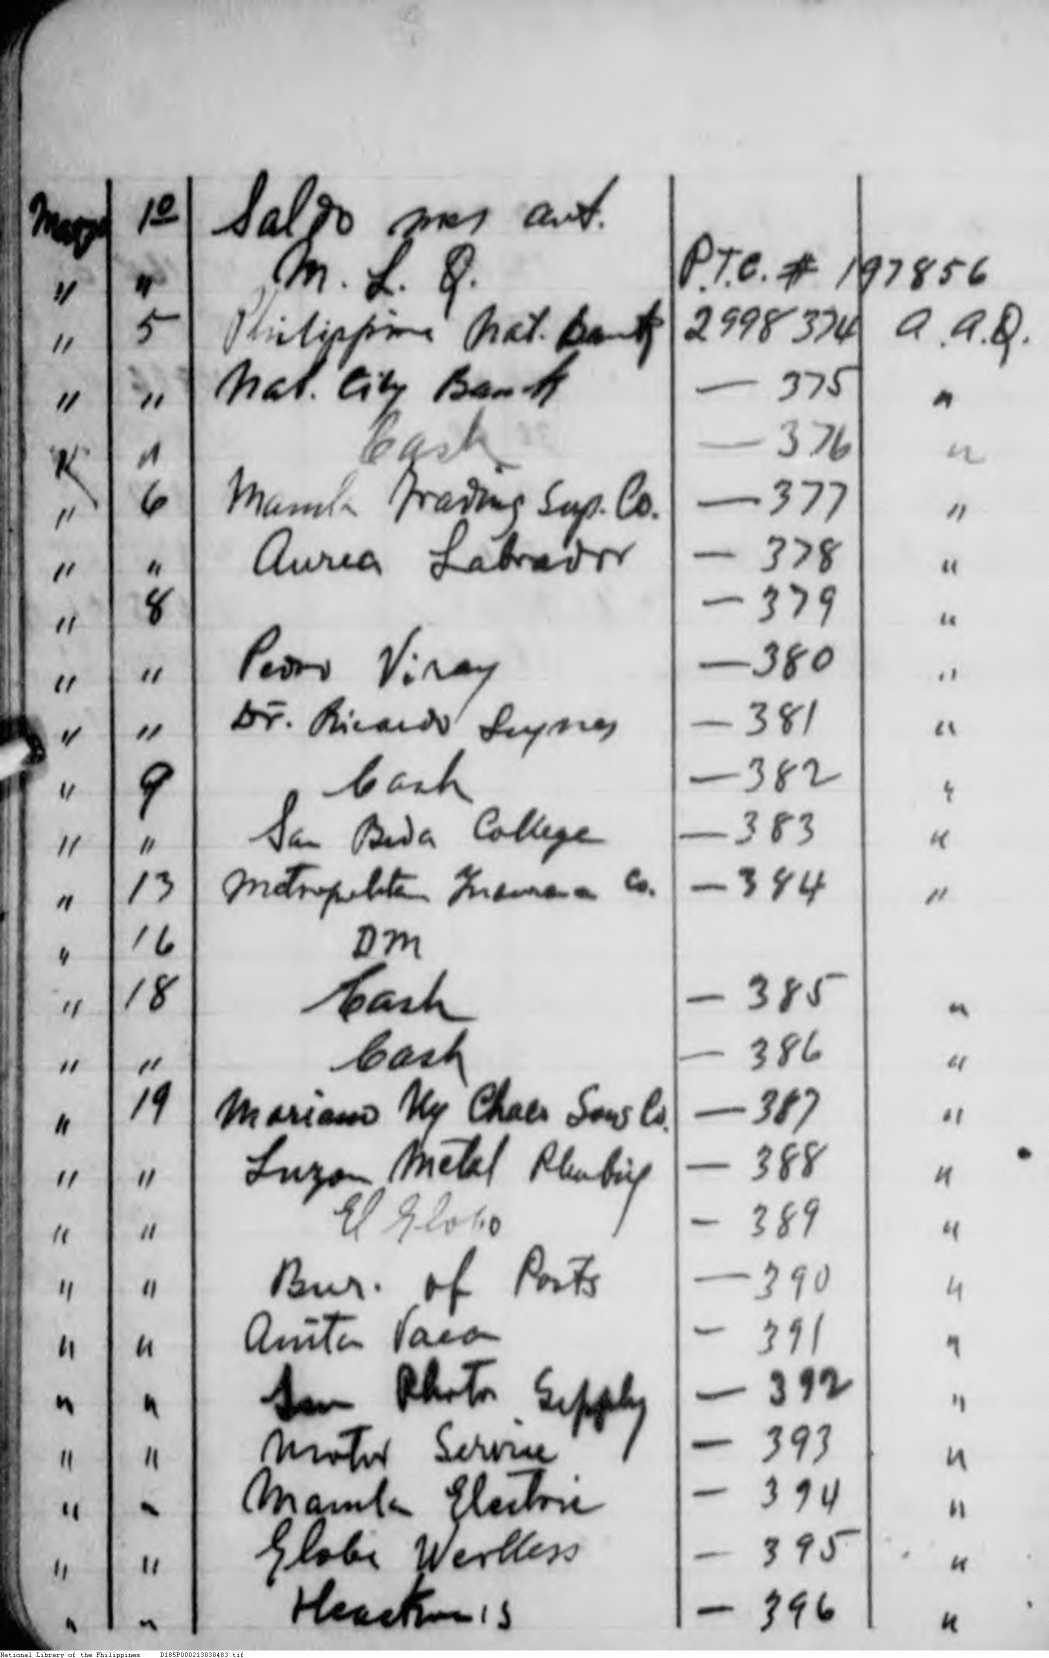 Marzo 10 Saldo mes ant.
" " M. L. Q. P.T.C. # 197856
" 5 Philippine Nat. Bank 2998374 A.A.Q.
" " Nat. City Bank — 375 "
" " Cash — 376 "
" 6 Manila Trading Sup. Co. — 377 "
" " Aurea Labrador — 378 "
" 8 — 379 "
" " Pedro Viray — 380 "
" " Dr. Ricardo — 381 "
" 9 Cash — 382 "
" " San Beda College — 383 "
" 13 Metropolitan Insurance Co. — 384 "
" 16 DM
" 18 Cash — 385 "
" " Cash — 386 "
" 19 Mariano Uy Chaco Sons Co. — 387 "
" " Luzon Metal Plumbing — 388 "
" " El Globo — 389 "
" " Bur. of Posts — 390 "
" " Anita Vaca — 391 "
" " Photo Supply — 392 "
" " Motor Service — 393 "
" " Manila Electric — 394 "
" " Globe Wireless — 395 "
" " Heacock's — 396 "
National Library of the Philippines D185P000213838483.tif